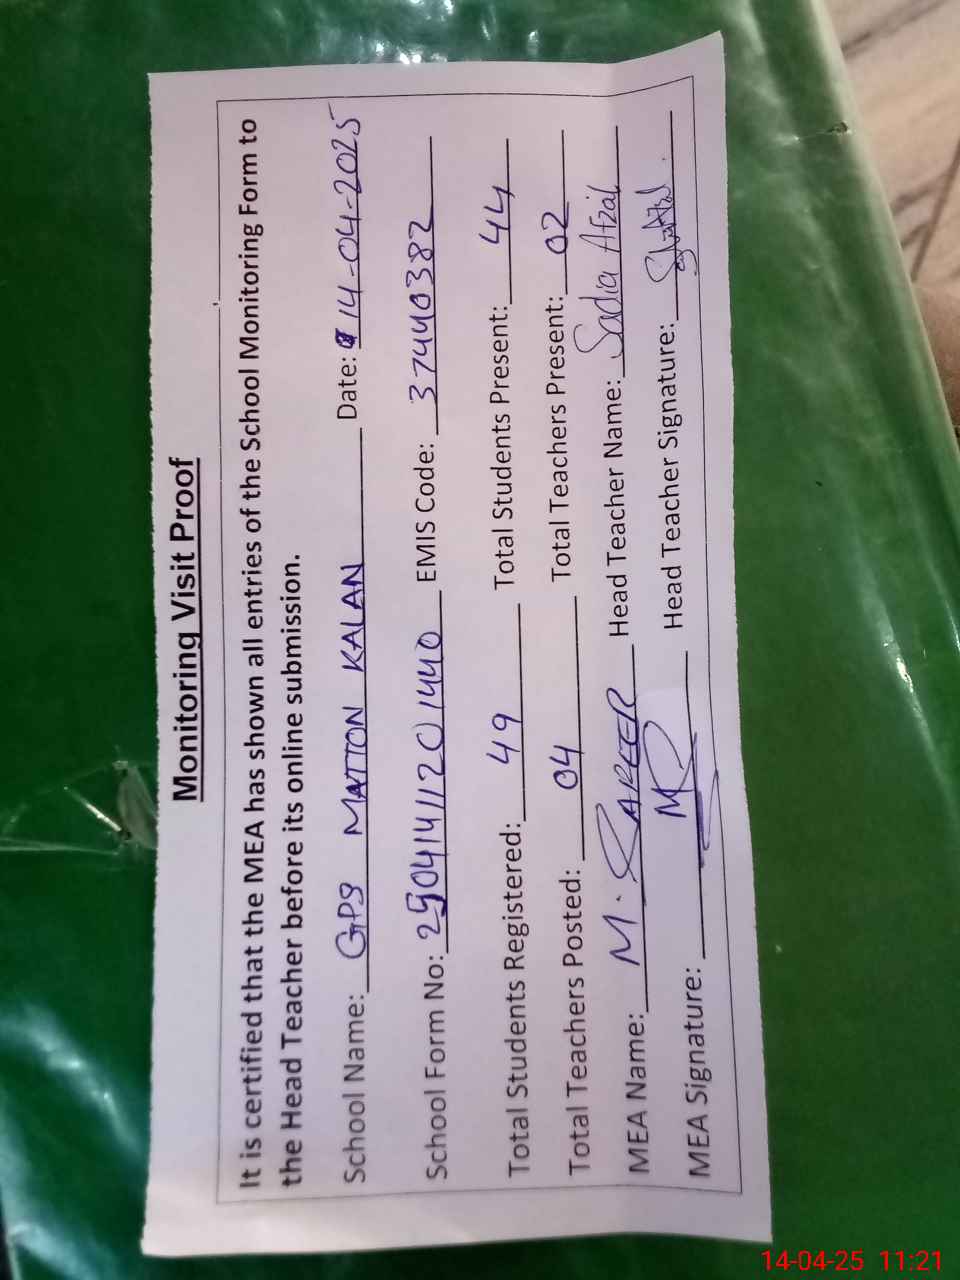 Monitoring Visit Proof
It is certified that the MEA has shown all entries of the School Monitoring Form to
the Head Teacher before its online submission.
School Name: GPS MATTON KALAN Date: 14-04-2025
School Form No: 25041411201440 EMIS Code: 37440382
Total Students Registered: 49 Total Students Present: 44
Total Teachers Posted: 04 Total Teachers Present: 02
MEA Name: M. Head Teacher Name: Sadia Afzal
MEA Signature: Head Teacher Signature:
14-04-25 11:21